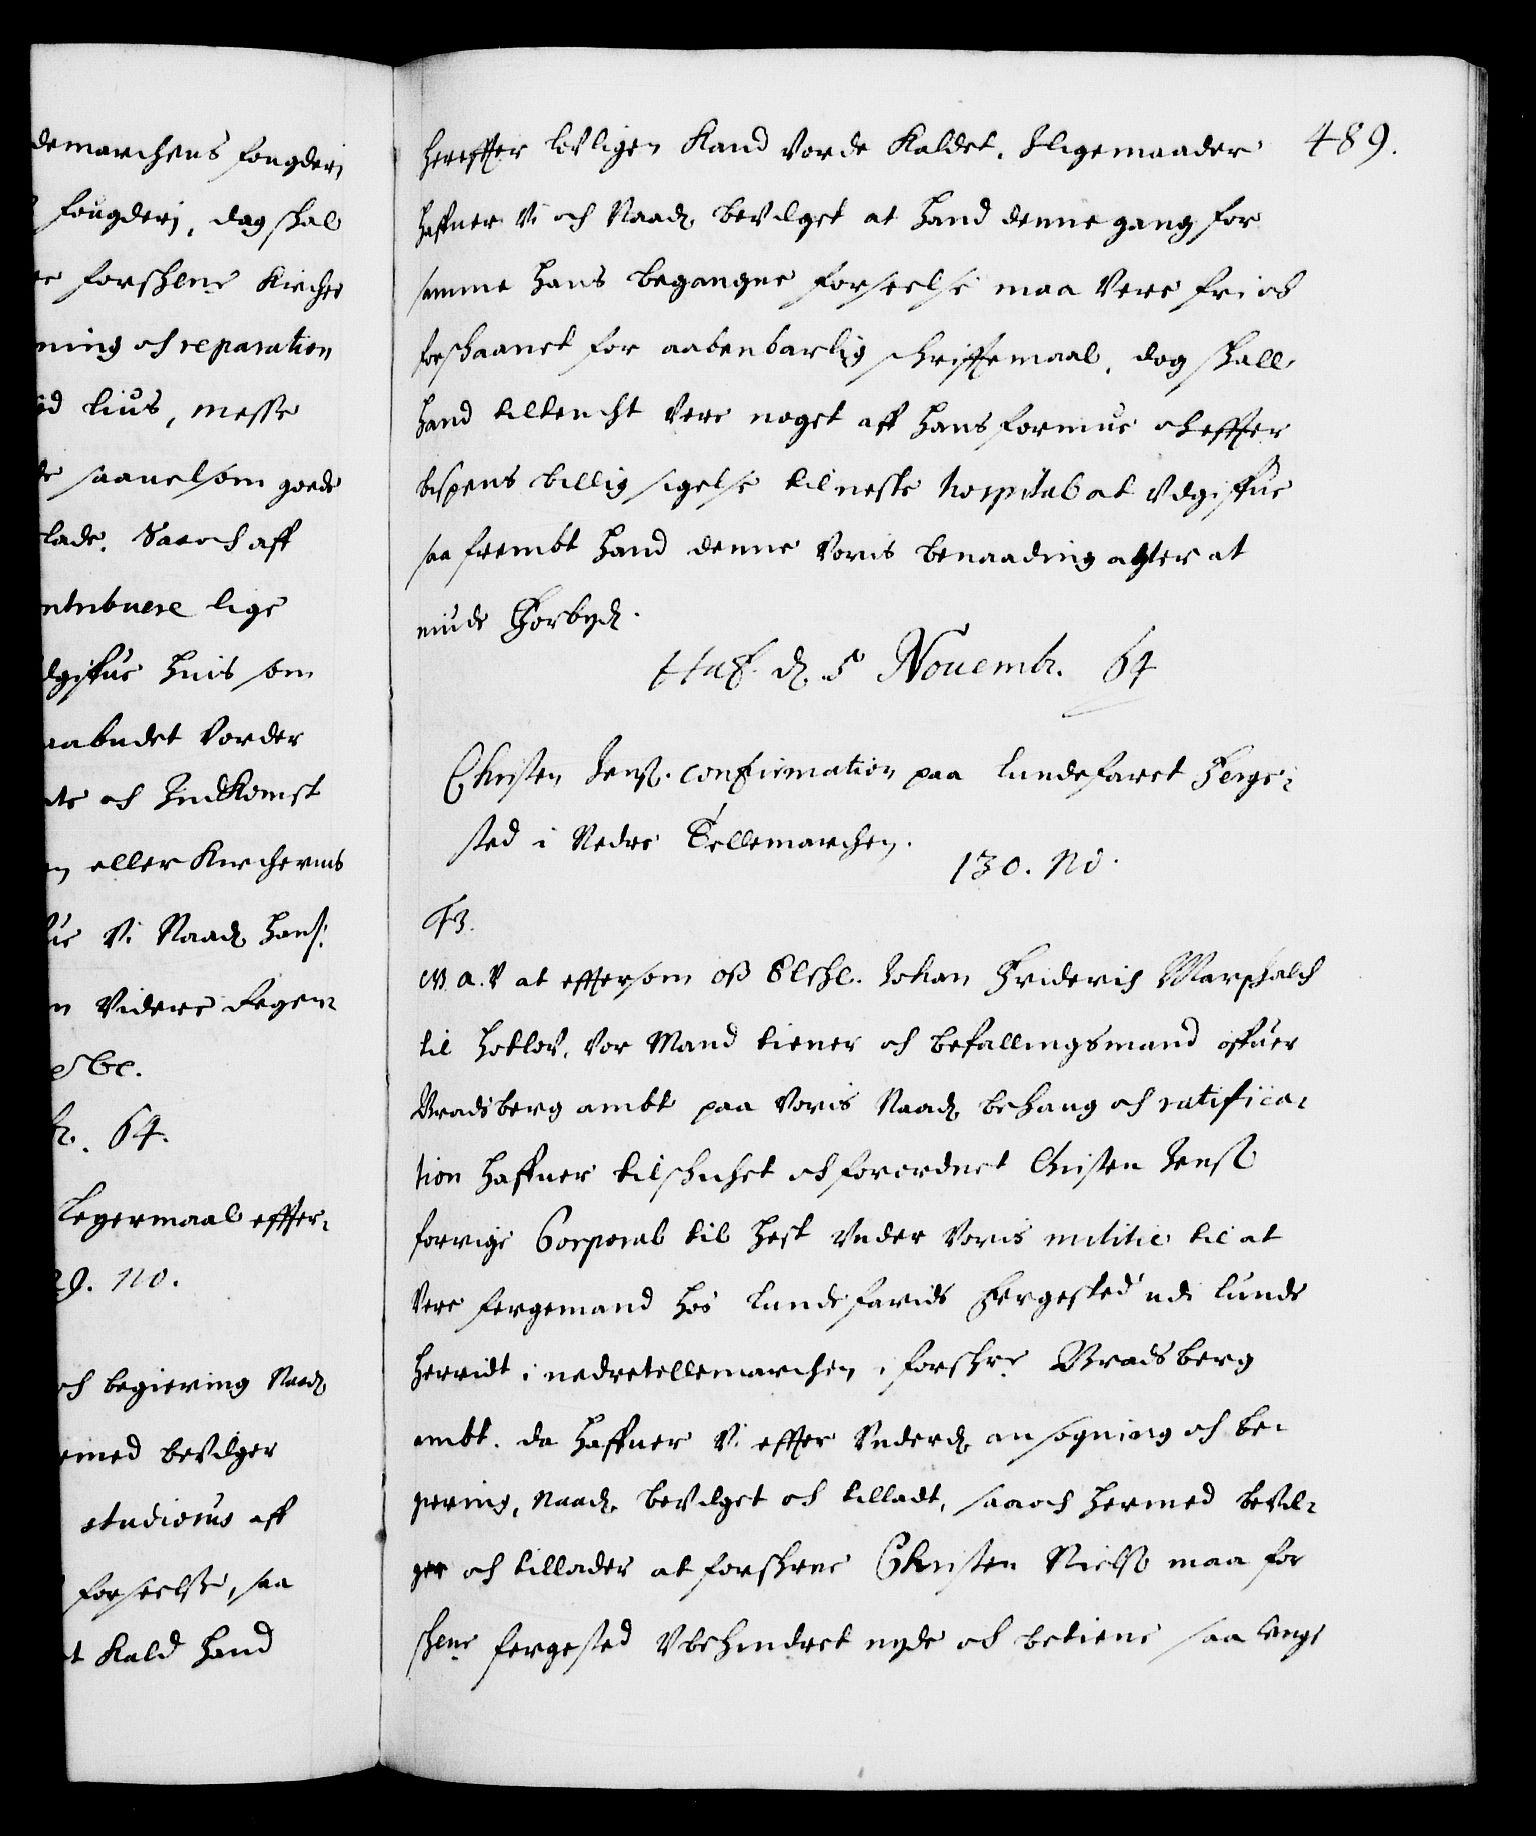 demarchens fougderj
fougderj, dog shal
forshrne Kircher
ning och reparation
lius, messe
saauelsom goede
lade. Saa och aff
ntribuere lige
dgiffue huis som
aabudet Vorder
och Indkomst
eller Kirchernis
Vi Naadh hans
Videre
64.
Legermaal effter-
29. no.
och begiering Naadh
emed beVilger
studiosus aff
forseelse, saa
Kald hand
489.
hereffter louligen Kand Vorde Kaldet. Sligemaader
haffuer Vi och Naadh beVilget at hand denne gang for
samme hans begangne forseelse maa Vere fri och
forshaanet for aabenbarlig shrifftemaal, dog shall
hand tiltencht Vere noget aff hans formue och effter
bispens billig sigelse til neste hospital at Vdgiffue
saa frembt hand denne Voris benaading agter at
niude Forbydh.
Haf. dh. 5 Nouembr. 64
Christen Jens. confirmation paa Lundefaret Ferge-
sted i Nedre Tellemarchen.
130. no.
F3.
W. a. V at effersom oss Elshl. Johan Friderich Marshalch
til Hotlov, Vor Mand tiener och befallingsmand offuer
Bradsberg ambt paa Voris Naadh behaug och ratifica-
tion haffuer tilshichet och forordnet Christen Jens
forrige Corporal til hest Vnder Voris militie til at
Vere fergemand hos Lundefarids Fergested udi Lunde
herridt i nedretellemarchen i forshre. Bradsberg
ambt. da haffuer Vi effter Vnderdh ansøgning och be-
giering, Naadh. beVilget och tilladt, saa och hermed beVil-
ger och tillader at forshrne Christen Niels maa for
shrne fergested Vbehindret nyde och betiene saa lenge